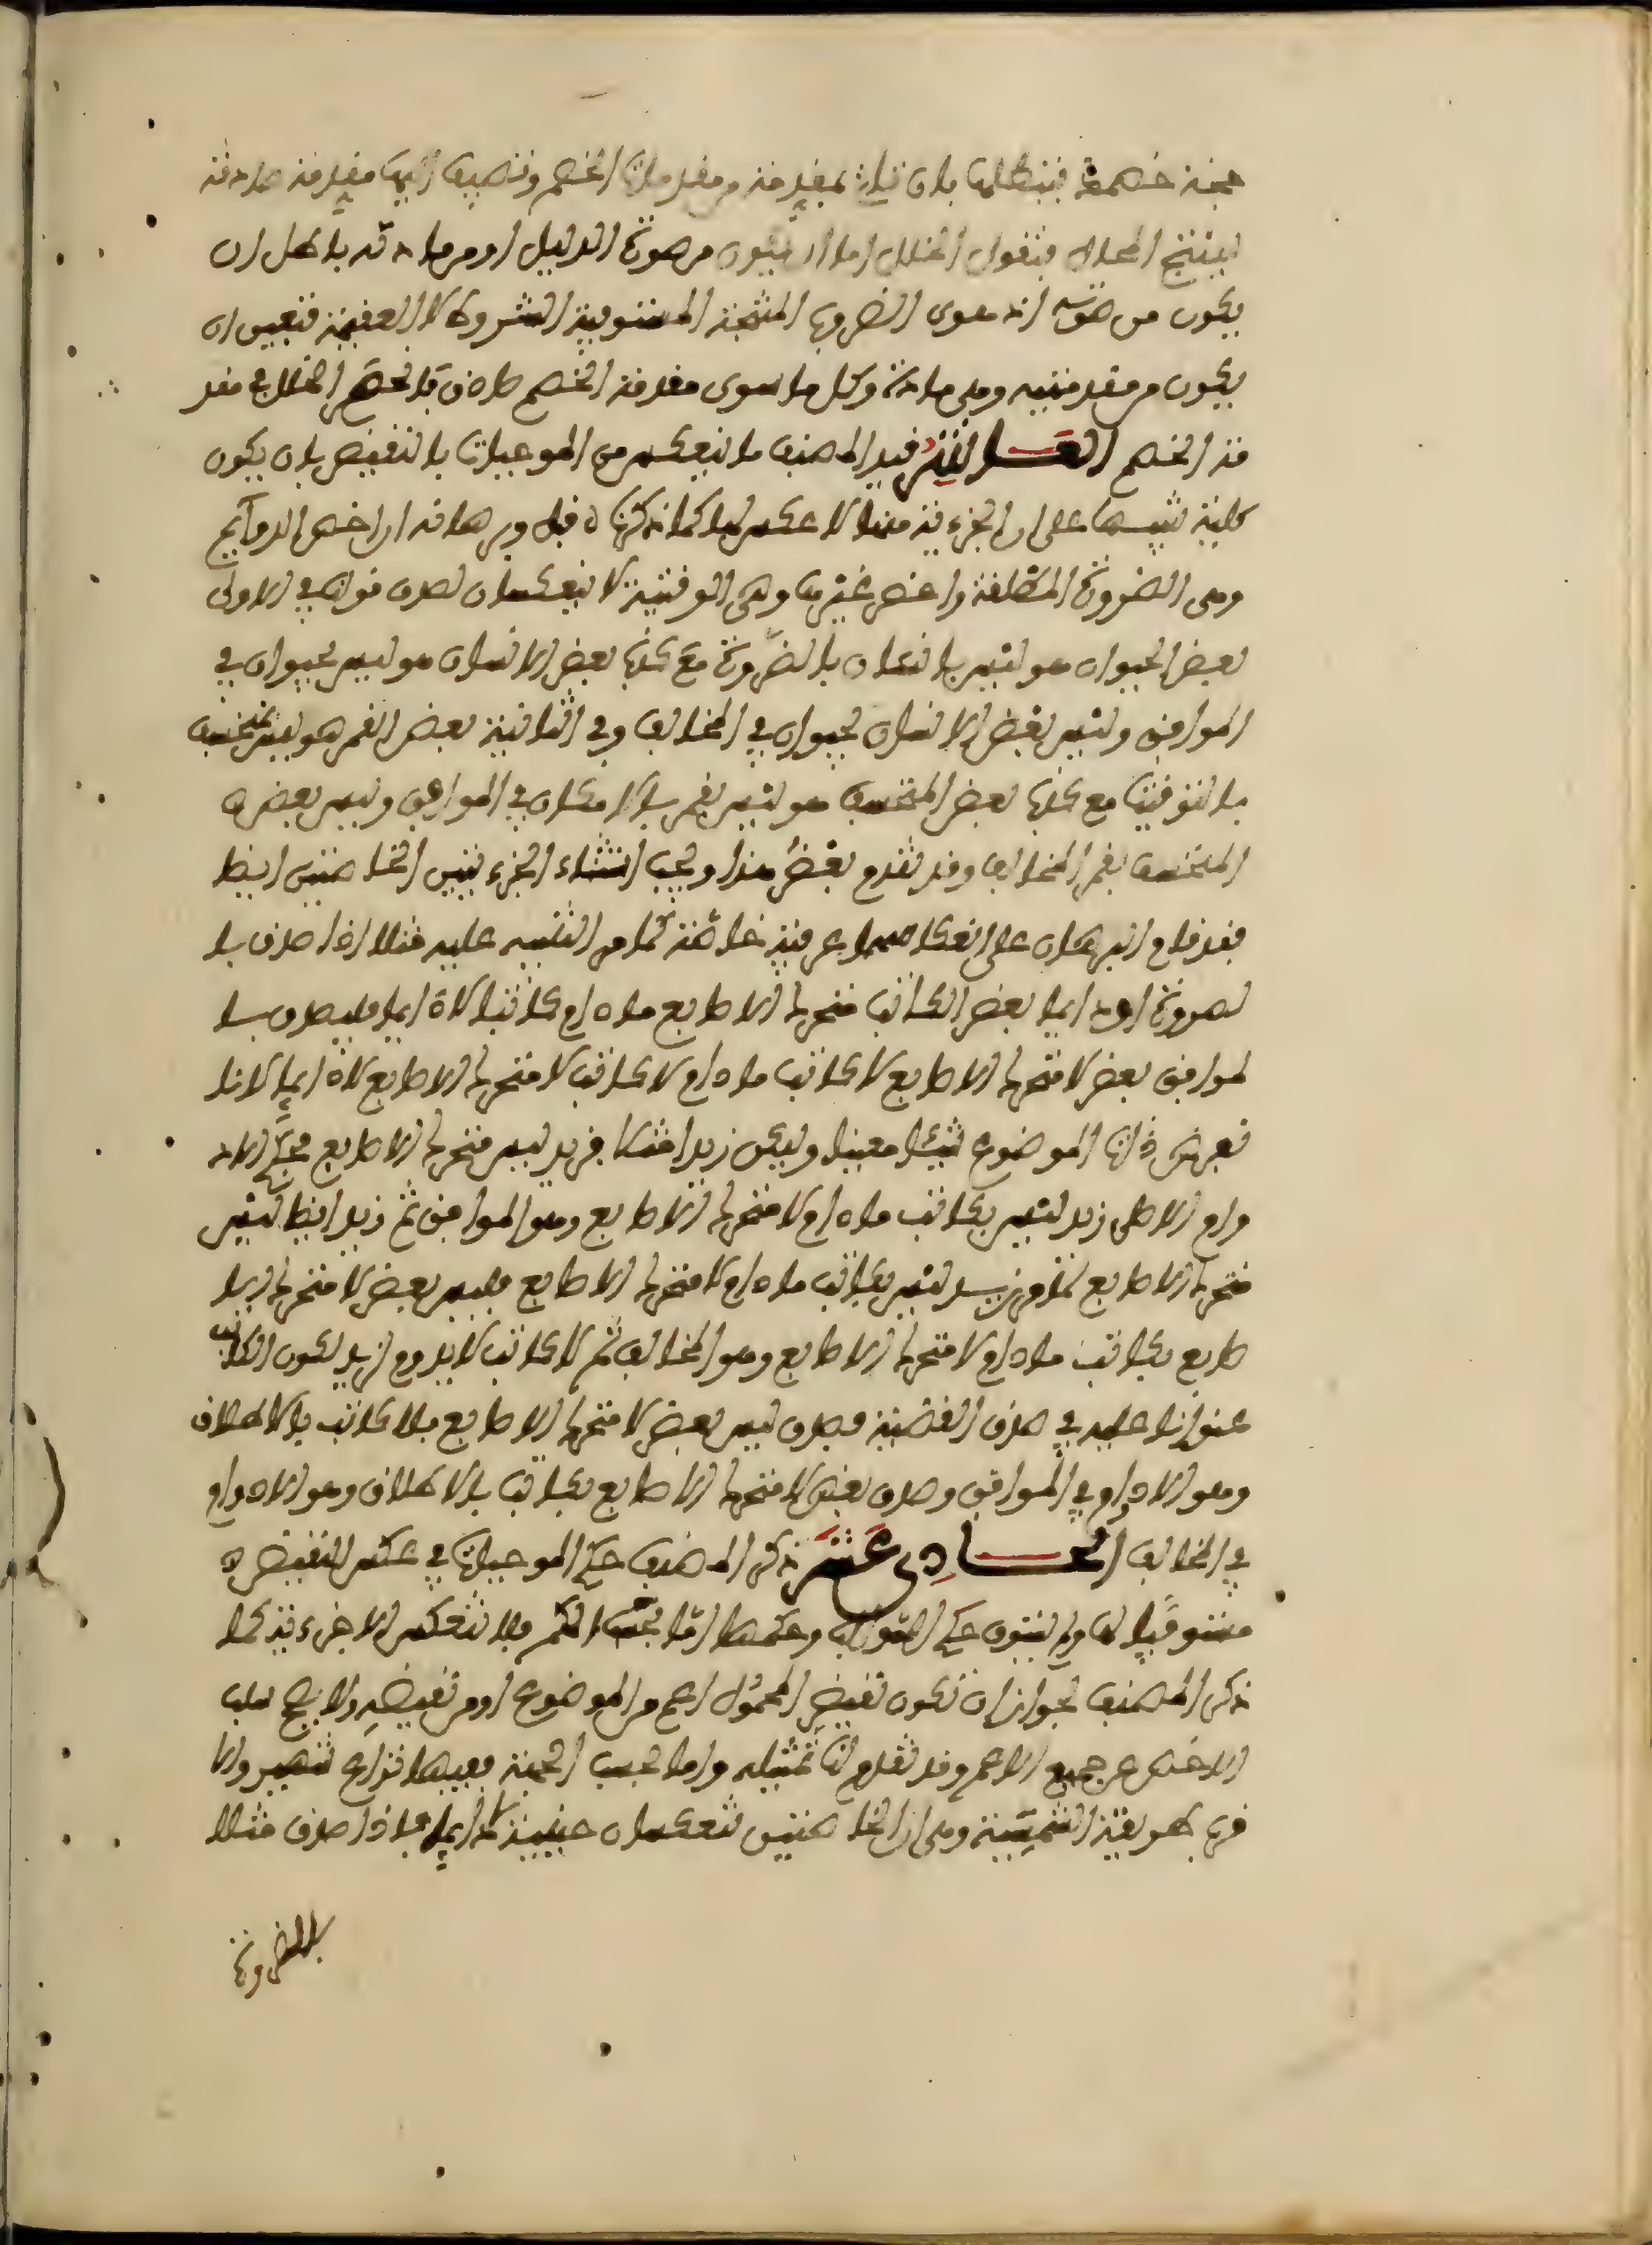 حجة خصمه فيبطلها بان تاتي بمقدمة من مقدمات الخصم وتضيف اليها مقدمة صادقة
لينتج المحال فتقول الخلل اما ان يكون من صورة الدليل او من مادته باطل ان
يكون من صورته اذ هو من الضروب المنتجة المستوفية الشروط لا العقيمة فتعين ان
يكون من مقدمتيه وهي مادته وكل ما سوى مقدمة الخصم صادق فانحصر الخلل في مقد
مة الخصم العاشر قيد المصنف ما ينعكس من الموجبات بالنقيض بان يكون
كلية تنبيها على ان الجزءية منها لا عكس لها كما ذكرنا قبل وبرهانه ان اخص الدوايم
وهي الضرورة المطلقة واخص غيرها وهي الوقتية لا ينعكسان لصدق قولنا في الاولى
بعض الحيوان هو ليس بانسان بالضرورة مع كذب بعض الانسان هو ليس بحيوان في
الموافق وليس بعض الانسان بحيوان في المخالف وفي الثانية بعض القمر هو ليس بمنخسف
بالتوقيت مع كذب بعض المنخسف هو ليس بقمر بالامكان في الموافق وليس بعض
المنخسف بقمر المخالف وقد تقدم بعض هذا ويجب استثناء الجزءيتين الخاصتين ايضا
فقد قام البرهان على انعكاسهما عرفية خاصة كما مر التنبيه عليه مثلا اذا صدق با
لضرورة او دايما بعض الكاتب متحرك الاصابع ما دام كاتبا لا دايما فليصدق با
لموافق بعض لا متحرك الاصابع لا كاتب ما دام لا متحرك الاصابع لا دايما لانا
نفرض ذات الموضوع شيئا معينا وليكن زيدا مثلا فزيد ليس متحرك الاصابع بحكم اللا د
وام الاصل زيد ليس بكاتب ما دام لا متحرك الاصابع وهو الموافق ثم زيد ايضا ليس
متحرك الاصابع كما مر زيد ليس بكاتب ما دام لا متحرك الاصابع فليس بعض لا متحرك الا
صابع بكاتب ما دام لا متحرك الاصابع وهو المخالف ثم لا كاتب لا يدوم لزيد لكون الكاتب
عنوانا عليه في صدق القضية فصدق ليس بعض لا متحرك الاصابع بلا كاتب بالاطلاق
وهو اللا دوام في الموافق وصدق بعض لا متحرك الاصابع بكاتب بالاطلاق وهو اللا دوام
في المخالف الحادي عشر ذكر المصنف حكم الموجبات في عكس النقيض
مستوفيا لها ولم يستوف حكم السوالب وحكمها اما بحسب الكم فلا تنعكس الا جزءية كما
ذكر المصنف لجواز ان تكون نقيض المحمول اعم من الموضوع او من نقيضه ولا يصح سلب
الاخص عن جميع الاعم وقد تقدم لنا تمثيله واما بحسب الجهة ففيها نزاع شهير والا
قرب طريقة الشمسية وهي ان الخاصتين تنعكسان حينية لا دايما فاذا صدق مثلا
بالضرورة